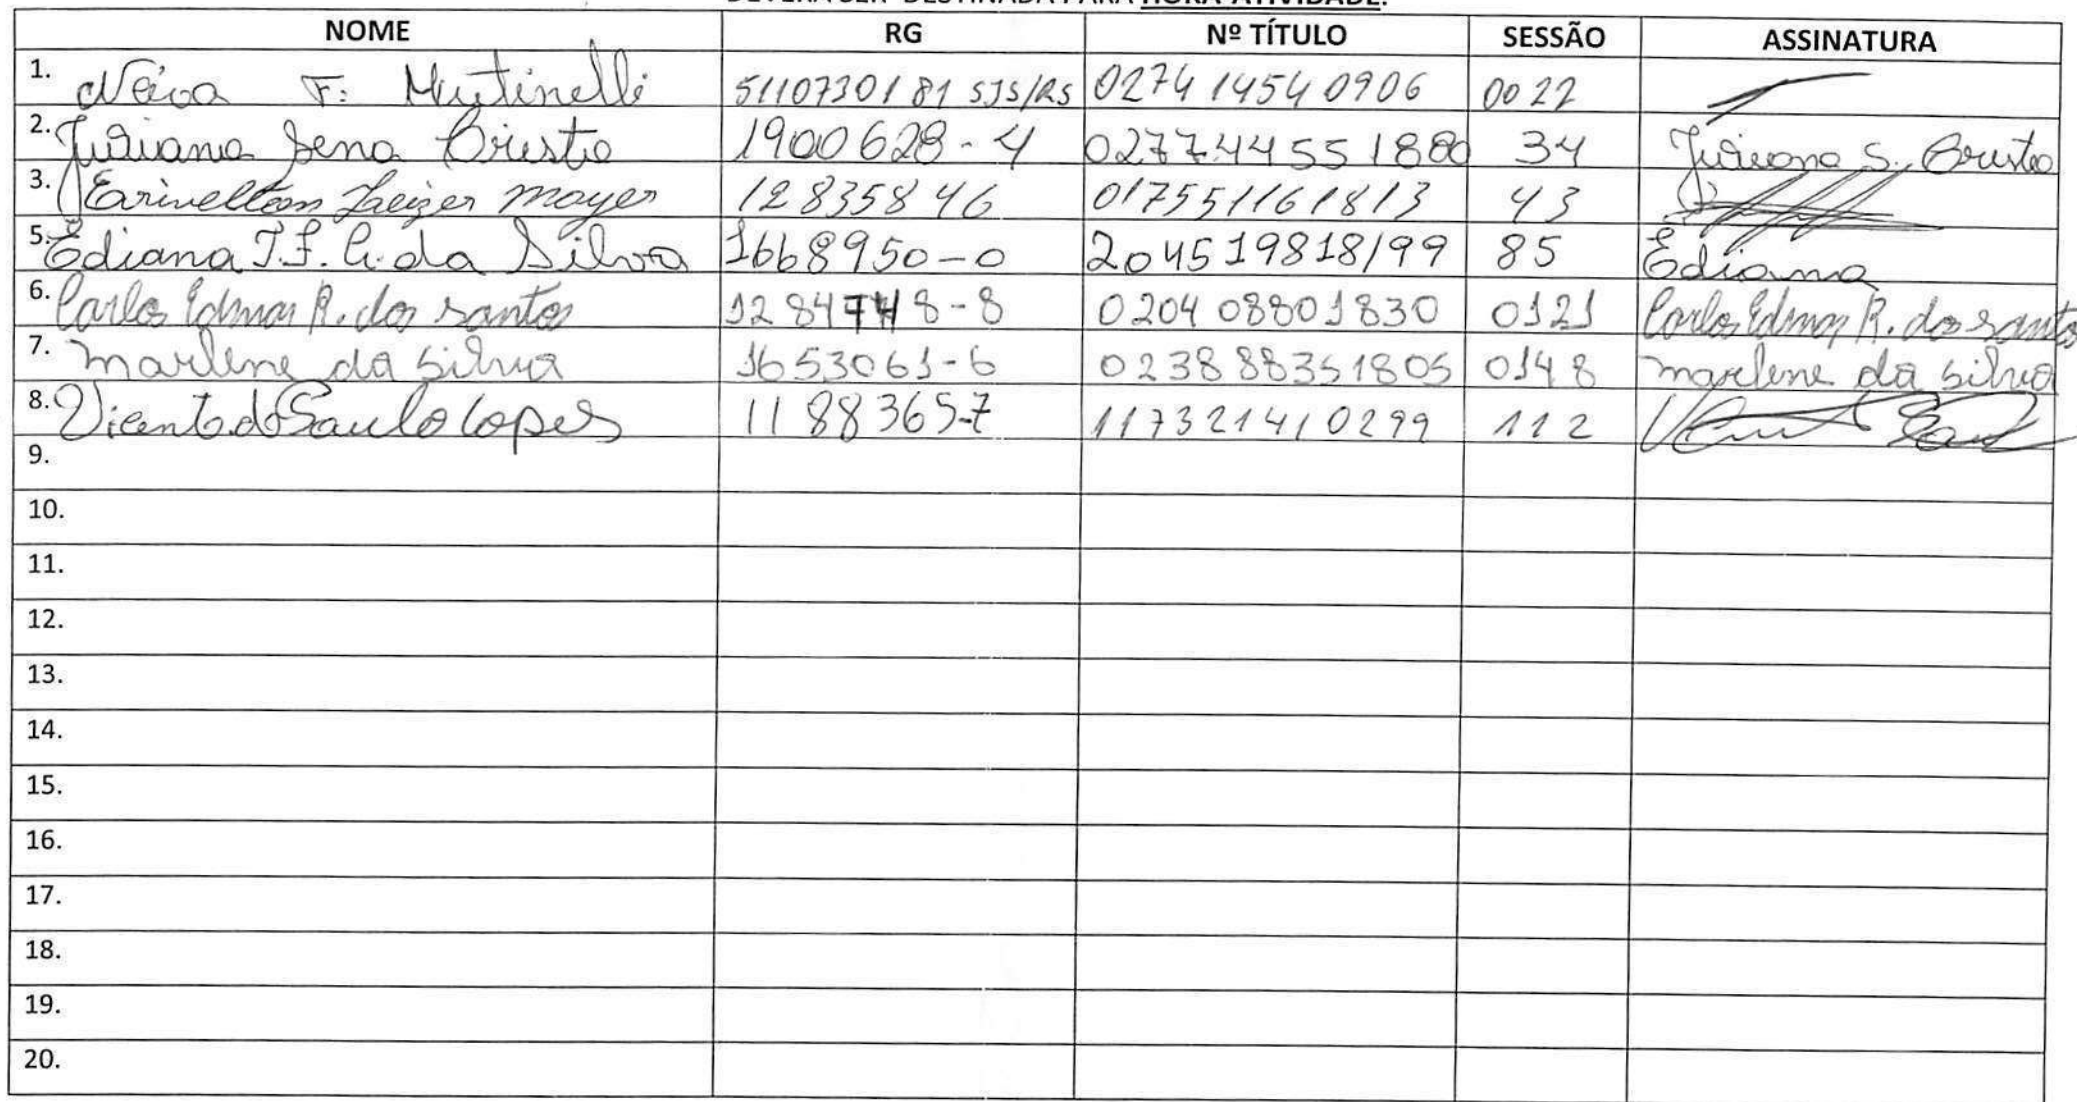 DEVERÁ SER DESTINADA PARA HORA-ATIVIDADE.
NOME RG Nº TÍTULO SESSÃO ASSINATURA
1. Neiva F. Martinelli 5110730181 SJS/RS 0274 1454 0906 0022
2. Juliana Sena Bristo 1900628-4 027744551880 34 Juliana S. Bristo
3. Erivelton Zeizer Mayer 12835846 017551161813 43
5. Ediana T.F. C. da Silva 1668950-0 204519818/99 85 Ediana
6. Carlos Edmar R. dos santos 1284748-8 0204 08801830 0121 Carlos Edmar R. dos santos
7. marlene da silva 1653061-6 023888351805 0148 marlene da silva
8. Vicente de Paulo lopes 11883657 117321410299 112
9.
10.
11.
12.
13.
14.
15.
16.
17.
18.
19.
20.